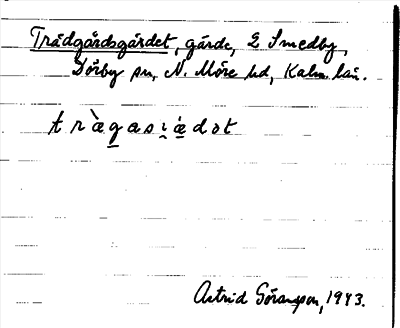 Trädgårdsgärdet, gärde, 2 Smedby,
Dörby sn, N. Möre hd, Kalm. län.
Astrid Göransson, 1943.